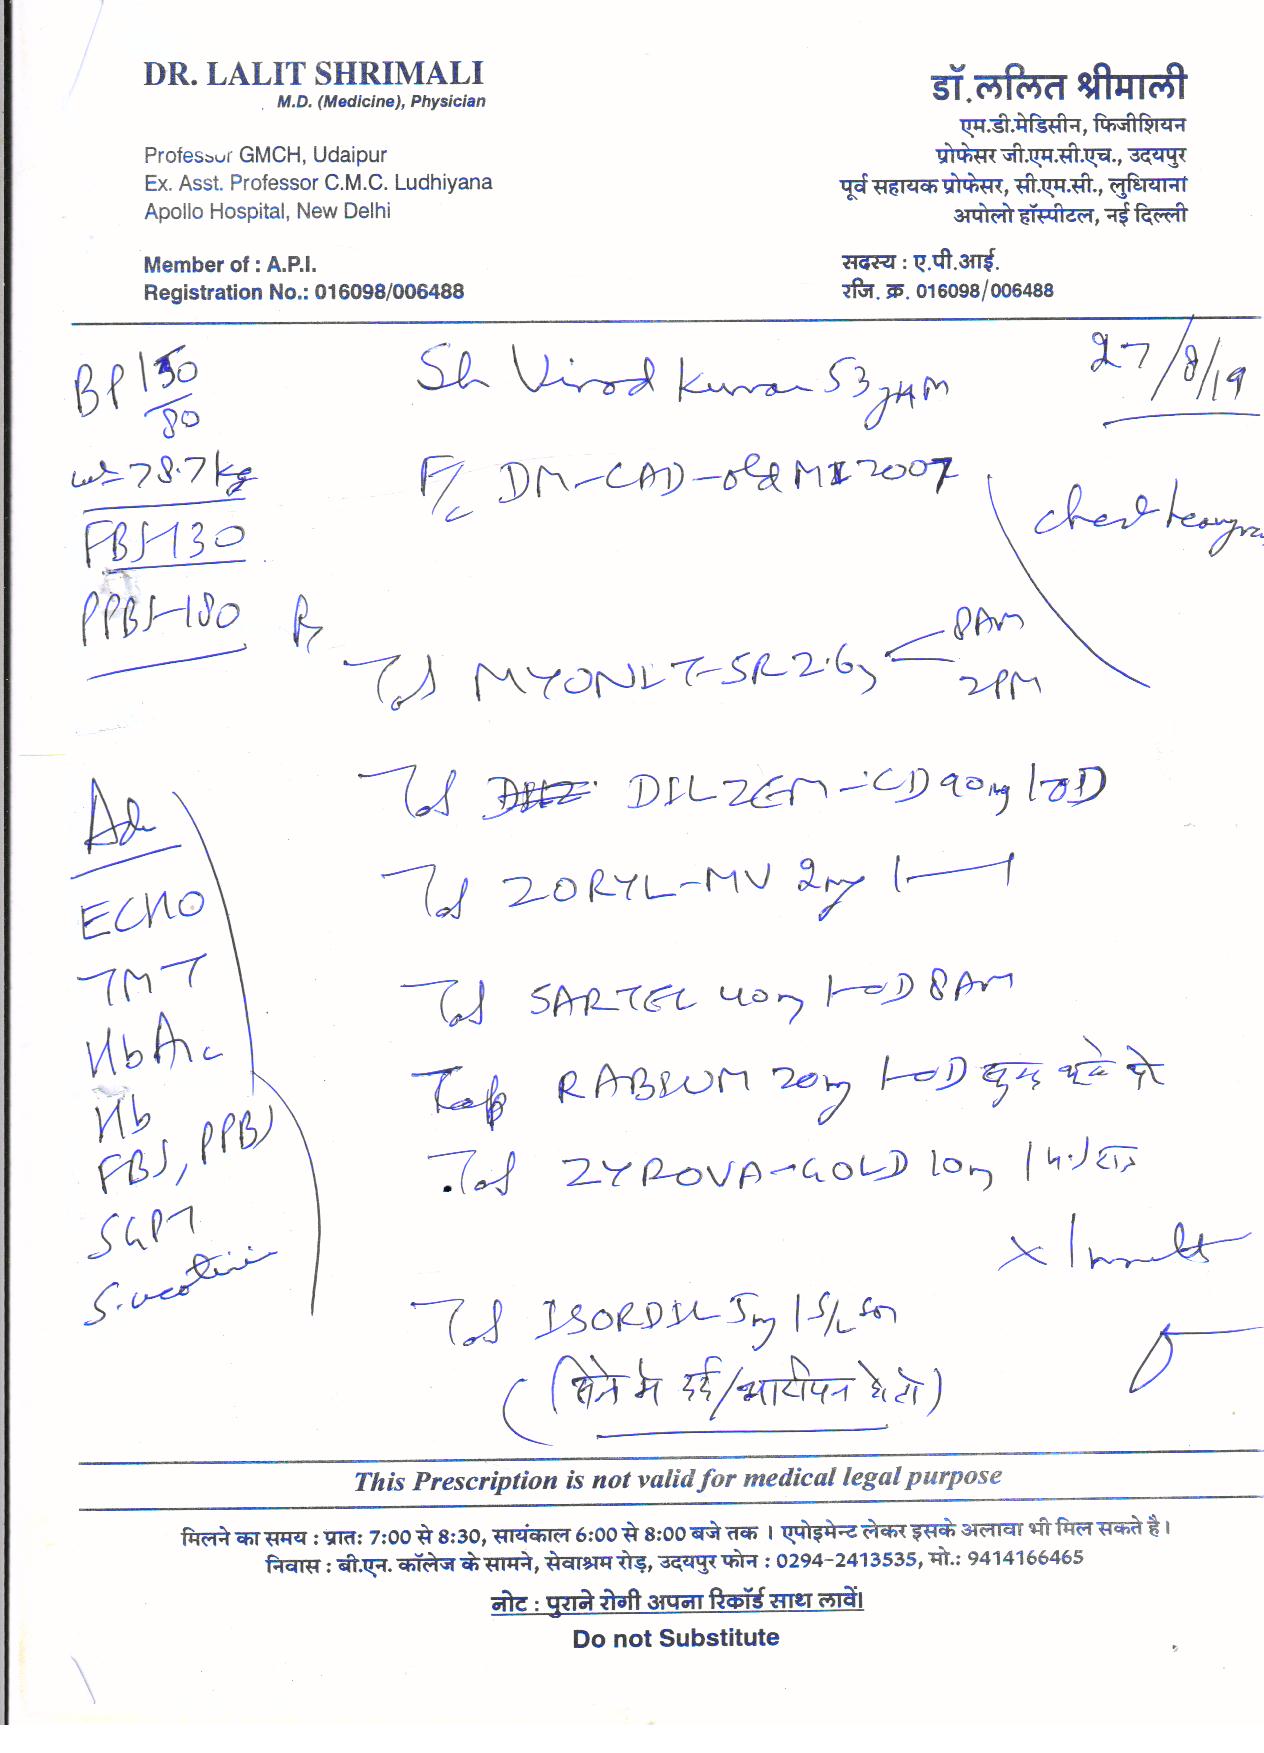 DR. LALIT SHRIMALI
M.D. (Medicine), Physician
Professor GMCH, Udaipur
Ex. Asst. Professor C.M.C. Ludhiyana
Apollo Hospital, New Delhi
Member of : A.P.I.
Registration No.: 016098/006488
डॉ.ललित श्रीमाली
एम.डी.मेडिसीन, फिजीशियन
प्रोफेसर जी.एम.सी.एच., उदयपुर
पूर्व सहायक प्रोफेसर, सी.एम.सी., लुधियाना
अपोलो हॉस्पीटल, नई दिल्ली
सदस्य : ए.पी.आई.
रजि. क्र. 016098/006488
27/8/19
Sh Vinod Kumar 53
BP 150/80
wt 78.7 kg
FBS-130
PPBS-180
F/c DM-CAD-old MI 2007
Chest
Rx
Tab MYONIT-SR 2.6 8AM
2PM
Tab DILZEM-CD 90mg 1-OD
Tab ZORYL-MV 2mg 1—1
Tab SARTEL 40mg 1-OD 8AM
Tab RABLUM 20mg 1-OD
Tab ZYROVA-GOLD 10mg 1
x 1
Tab ISORDIL 5mg 1 S/L
(सीने मे दर्द/भारीपन हो तो)
Adv
ECHO
TMT
HbA1c
Hb
FBS, PPBS
SGPT
S.creatinine
This Prescription is not valid for medical legal purpose
मिलने का समय : प्रातः 7:00 से 8:30, सायंकाल 6:00 से 8:00 बजे तक । एपोइमेन्ट लेकर इसके अलावा भी मिल सकते है।
निवास : बी.एन. कॉलेज के सामने, सेवाश्रम रोड़, उदयपुर फोन : 0294-2413535, मो.: 9414166465
नोट : पुराने रोगी अपना रिकॉर्ड साथ लावें।
Do not Substitute